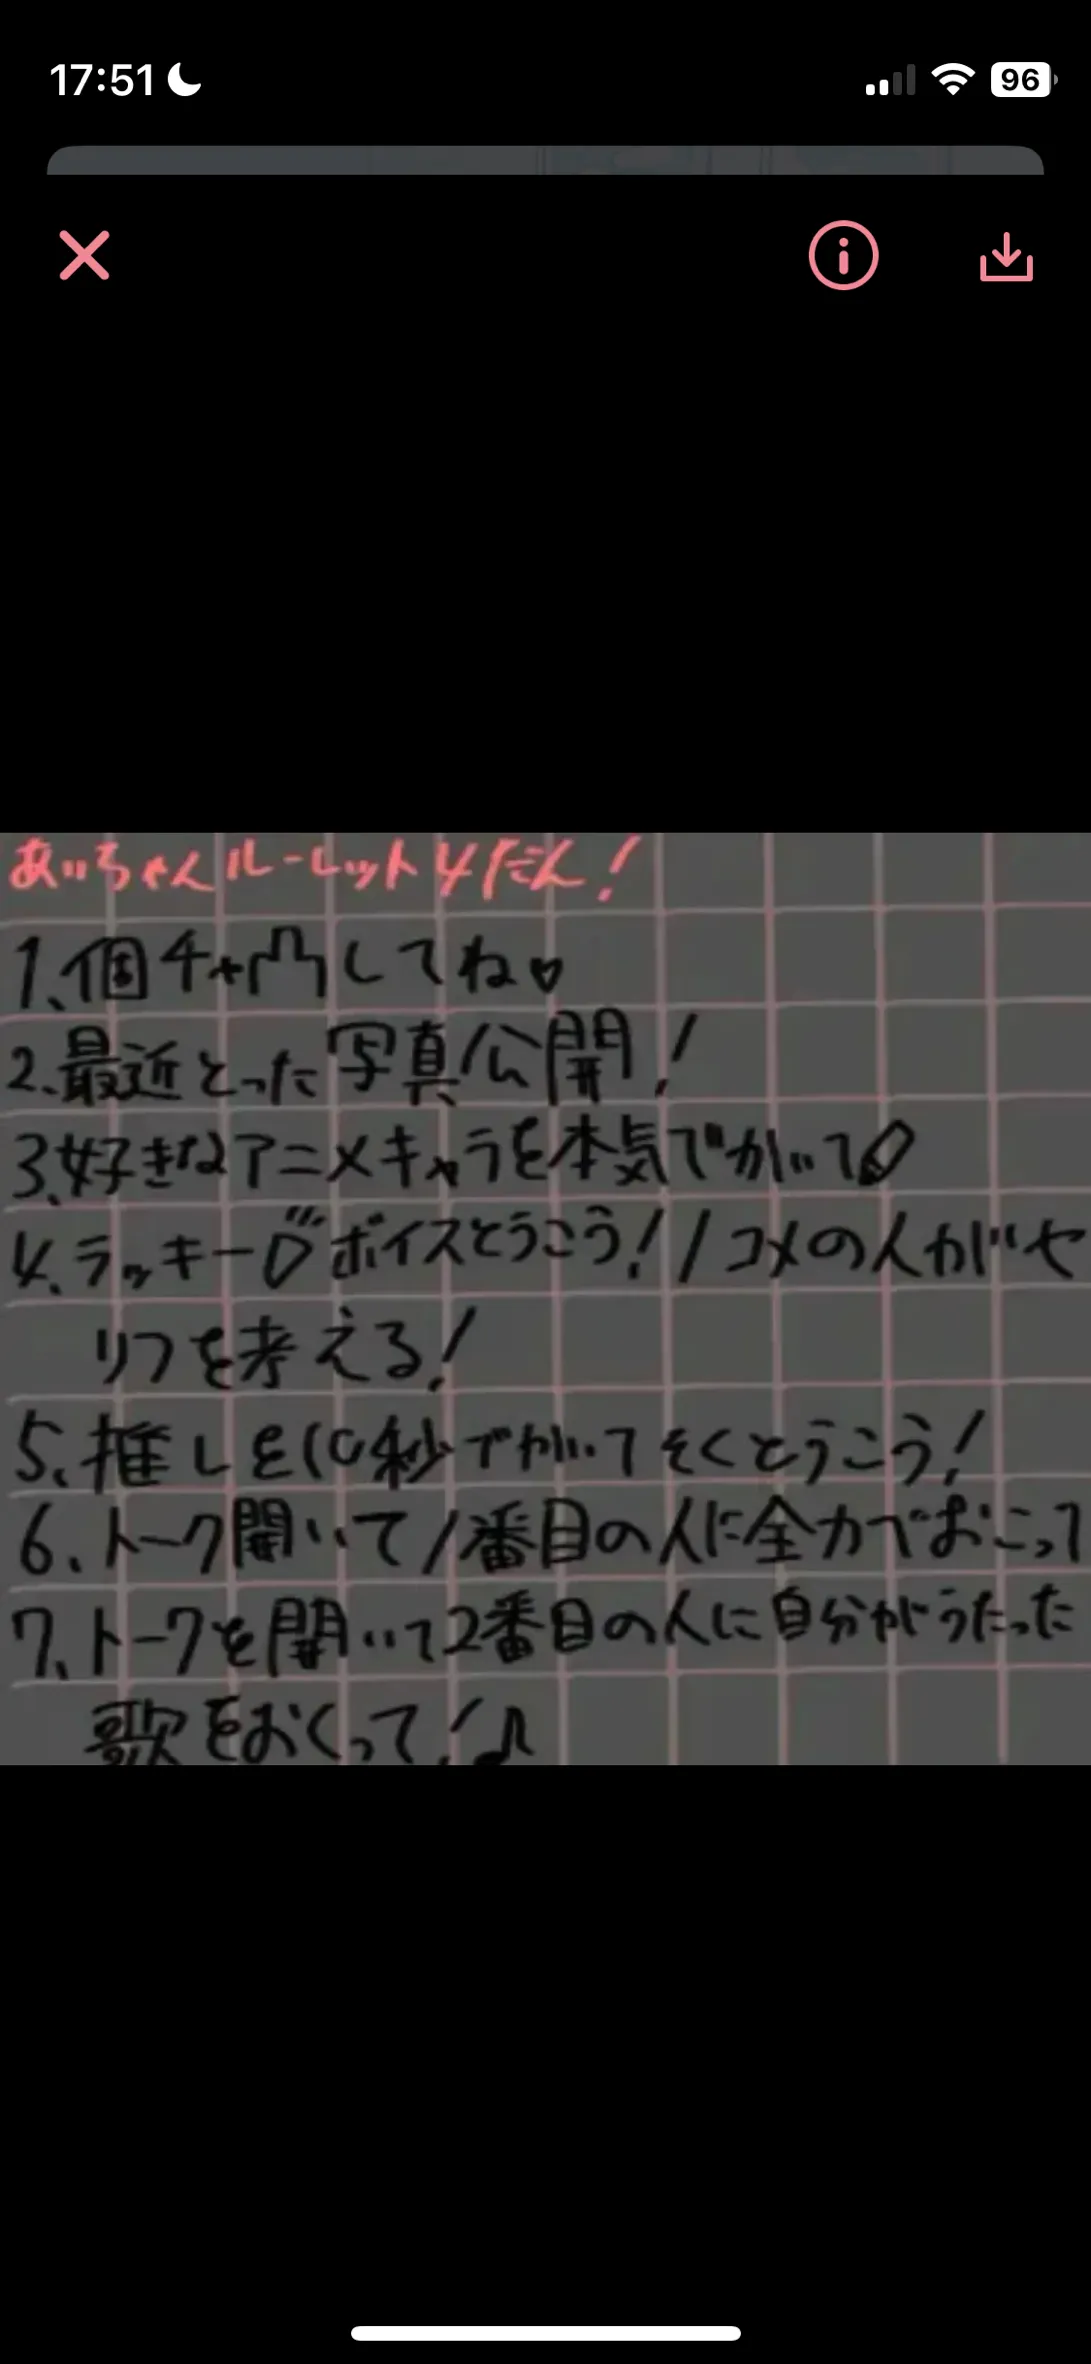 17:51
96
あいちゃんルーレット4だん!
1、個チャ凸してね♡
2、最近とった写真公開!
3、好きなアニメキャラを本気でかいて
4、ラッキーボイスとうこう!1コメの人がセ
リフを考える!
5、推しを10秒でかいてそくとうこう!
6、トーク開いて1番目の人に全力でおこって
7、トークを開いて2番目の人に自分がうたった
歌をおくって!♪